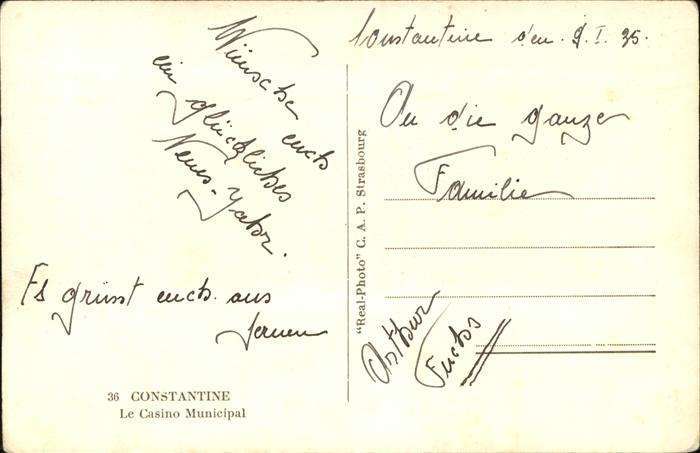 Constantine den 2.I.35.
Wünsche euch
ein glückliches
Neues-Jahr.
An die ganze
Familie
Es grüsst euch aus
fernen
Arthur
Fuchs
"Real-Photo" C. A. P. Strasbourg
36 CONSTANTINE
Le Casino Municipal